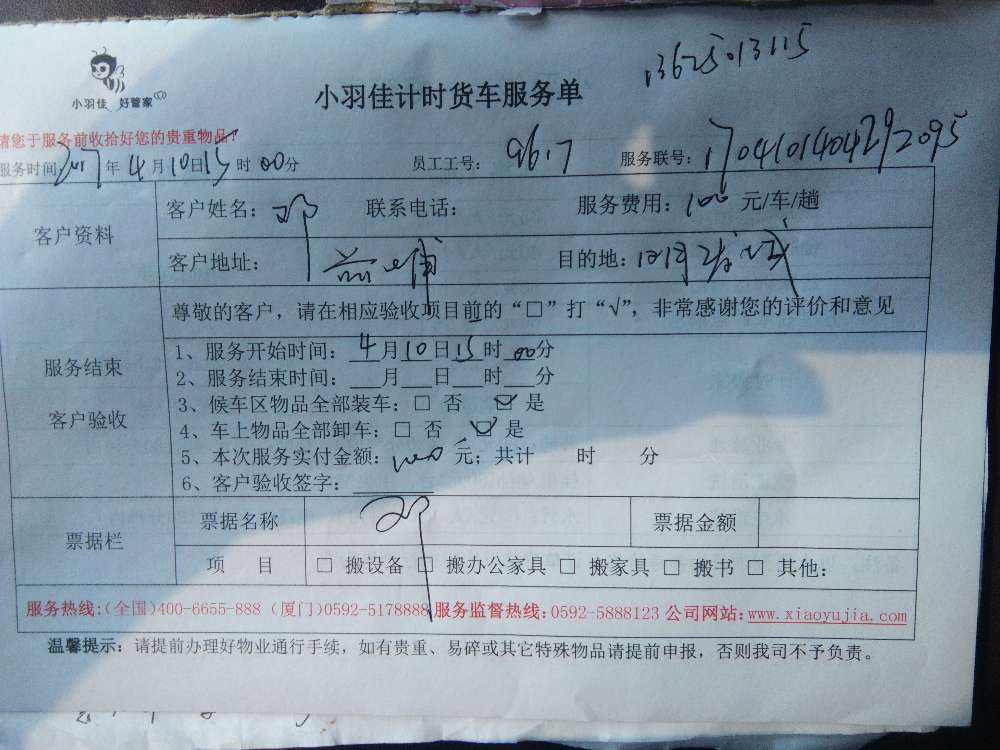 13625013115
小羽佳 好管家
小羽佳计时货车服务单
请您于服务前收拾好您的贵重物品!
服务时间 2017 年 4 月 10 日 15 时 00 分 员工工号: 9617 服务联号: 1704101404292095
客户资料
客户姓名: 邓 联系电话: 服务费用: 100 元/车/趟
客户地址: 目的地:
尊敬的客户,请在相应验收项目前的“□”打“√”,非常感谢您的评价和意见
服务结束
客户验收
1、服务开始时间: 4 月 10 日 15 时 00 分
2、服务结束时间:___月___日___时___分
3、候车区物品全部装车:□ 否 ☑ 是
4、车上物品全部卸车:□ 否 ☑ 是
5、本次服务实付金额: 元;共计 时 分
6、客户验收签字: 邓
票据栏
票据名称 票据金额
项 目 □ 搬设备 □ 搬办公家具 □ 搬家具 □ 搬书 □ 其他:
服务热线:(全国)400-6655-888 (厦门)0592-5178888 服务监督热线:0592-5888123 公司网站:www.xiaoyujia.com
温馨提示:请提前办理好物业通行手续,如有贵重、易碎或其它特殊物品请提前申报,否则我司不予负责。